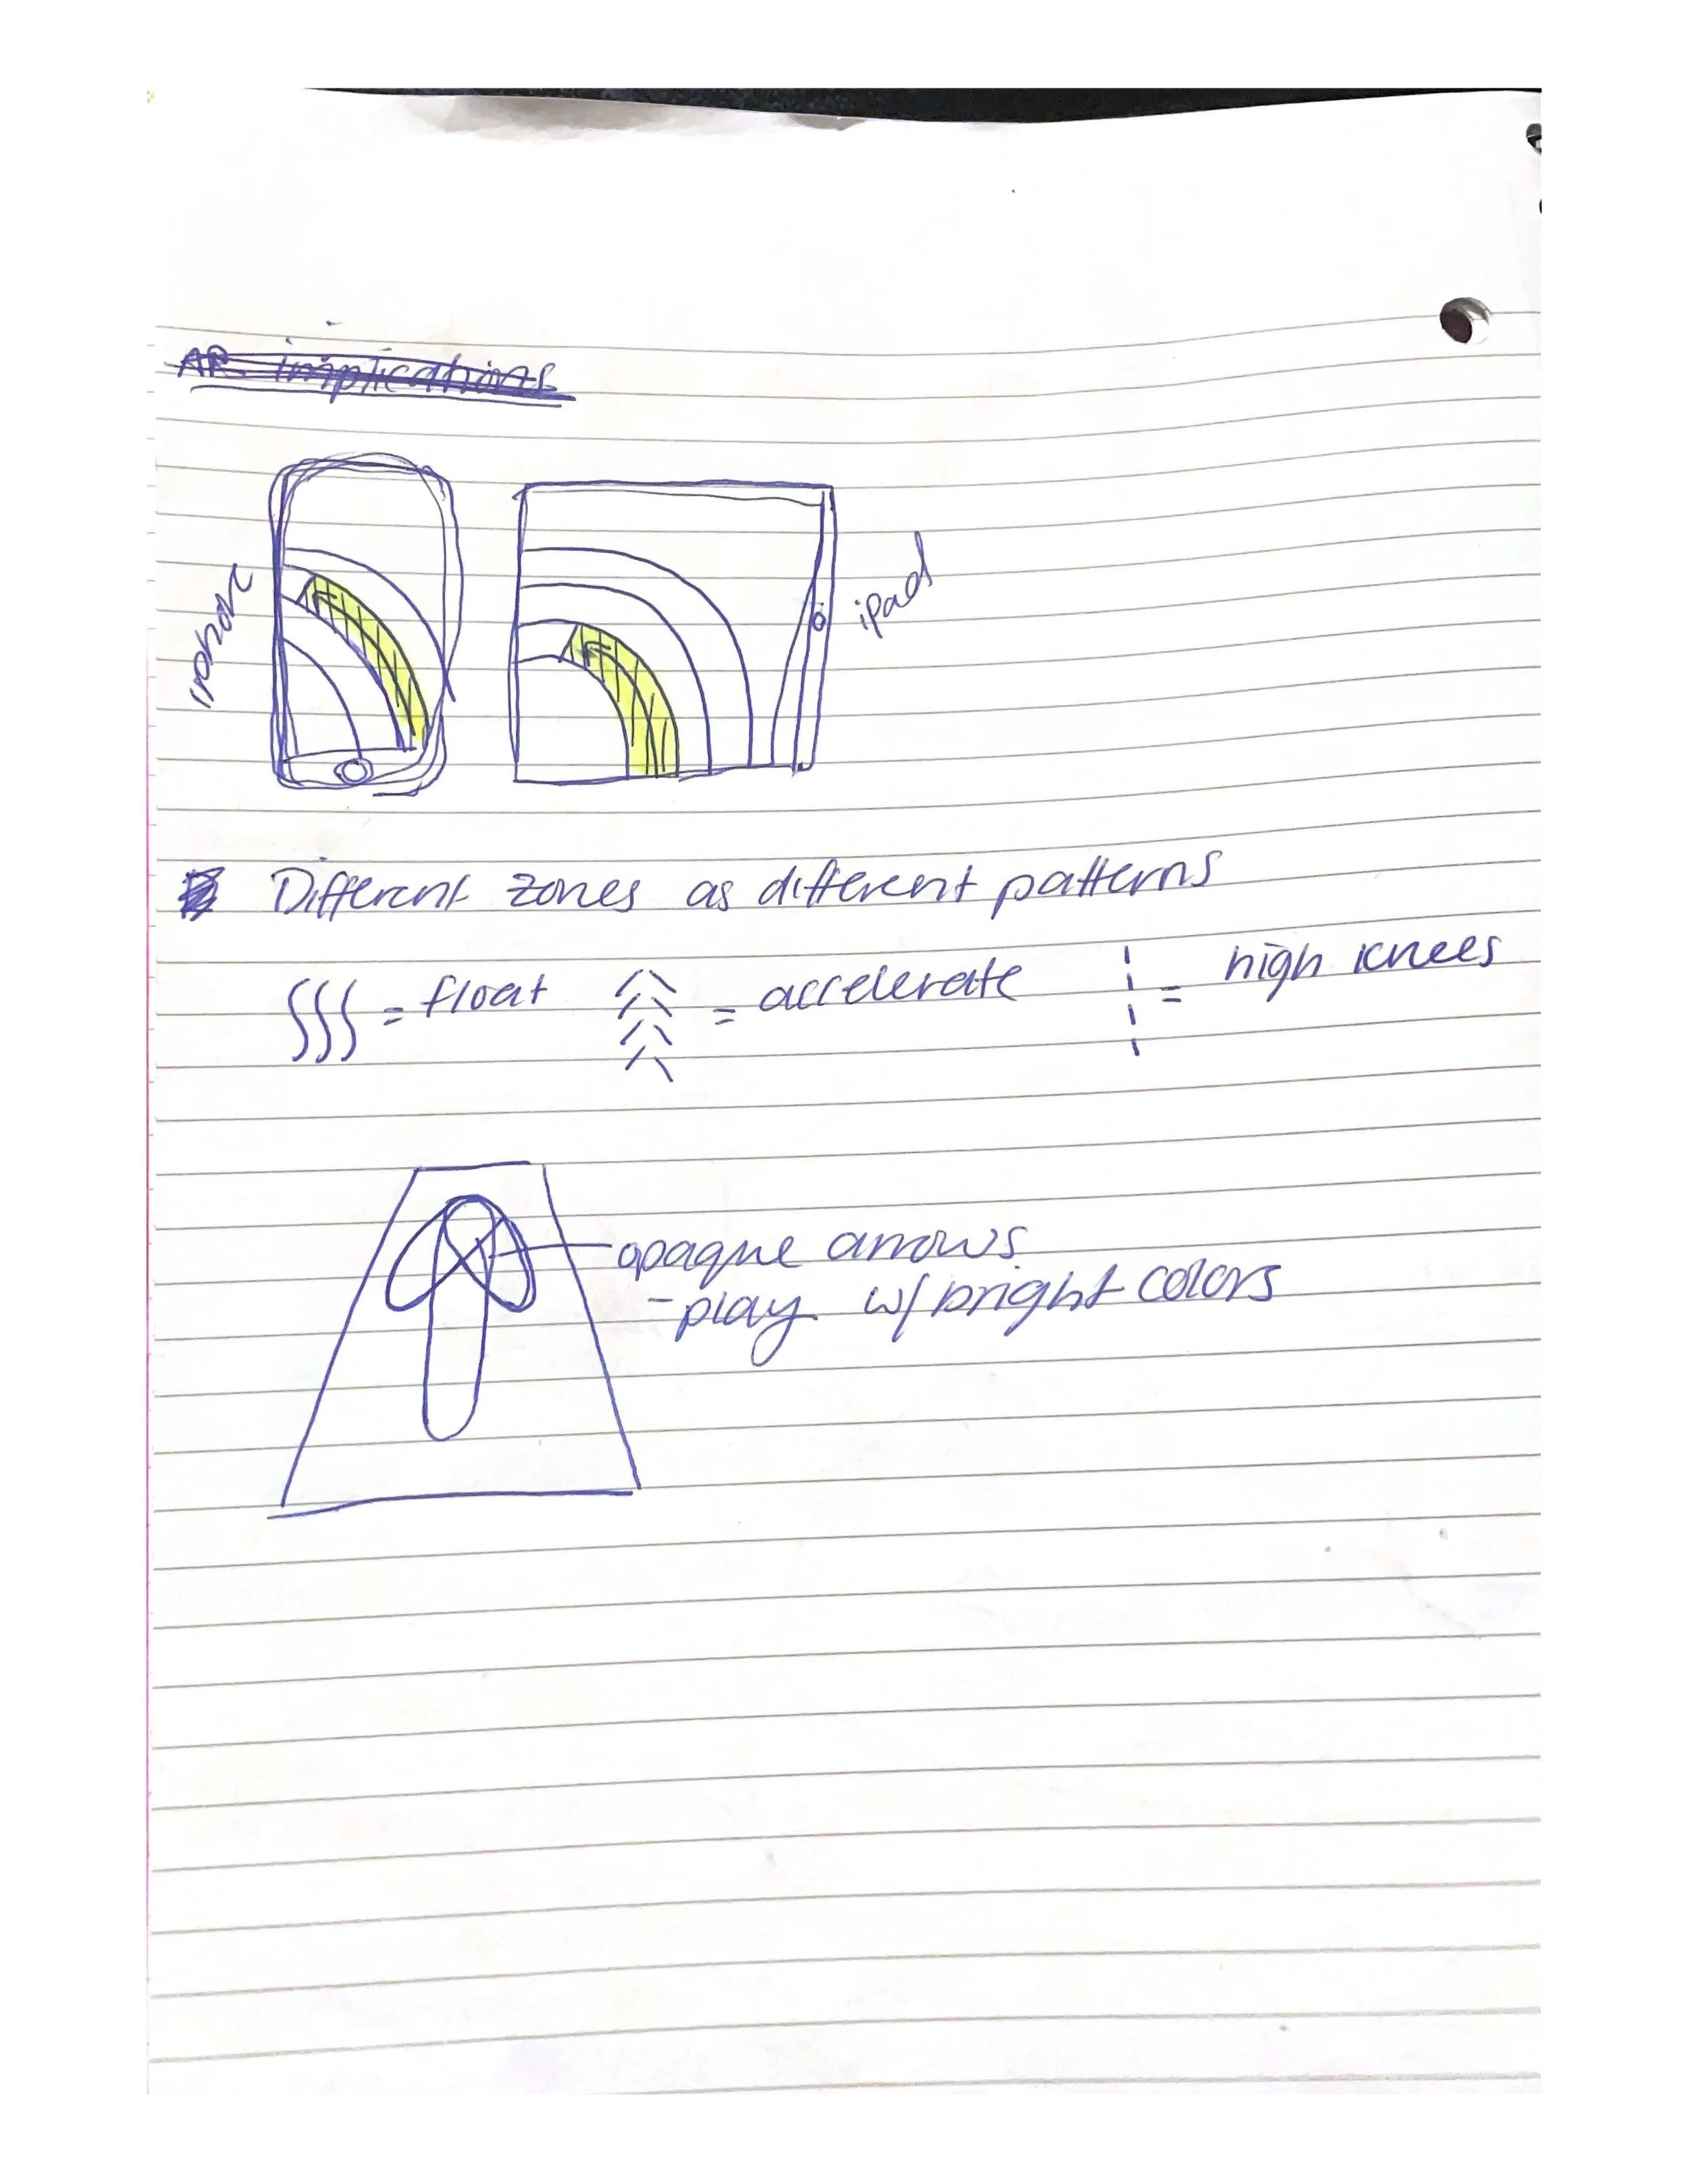 AR implications
iphone
ipad
Different zones as different patterns
= float
= accelerate
= high knees
opaque arrows
- play w/ bright colors